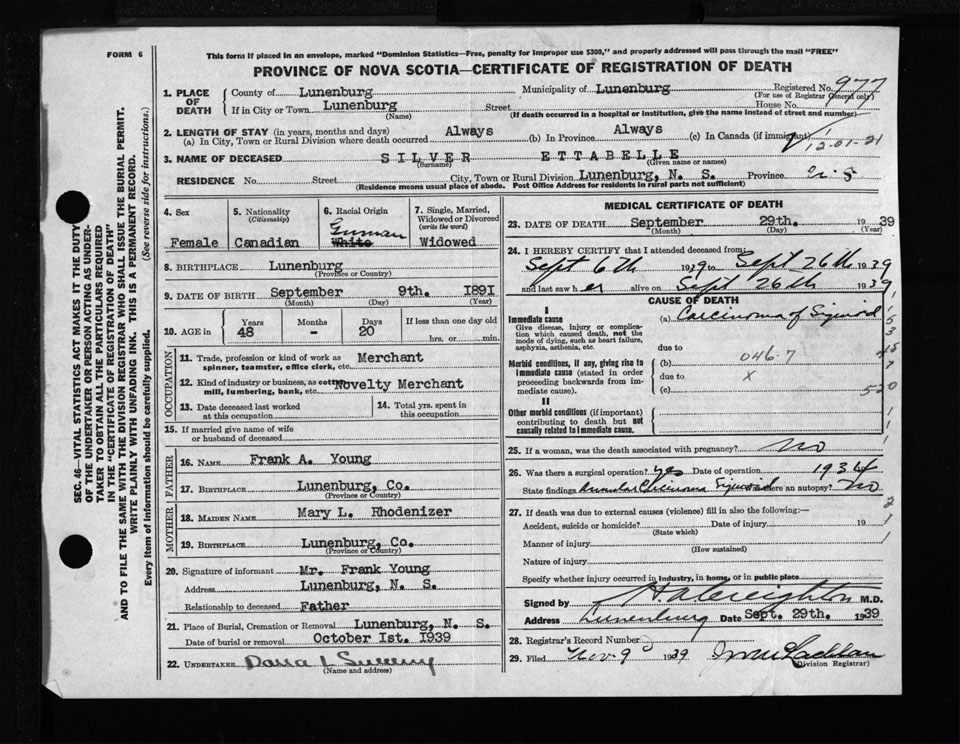 FORM 6
This form if placed in an envelope, marked "Dominion Statistics—Free, penalty for improper use $300," and properly addressed will pass through the mail "FREE"
PROVINCE OF NOVA SCOTIA—CERTIFICATE OF REGISTRATION OF DEATH
SEC. 46—VITAL STATISTICS ACT MAKES IT THE DUTY
OF THE UNDERTAKER OR PERSON ACTING AS UNDER-
TAKER TO OBTAIN ALL THE PARTICULARS REQUIRED
IN THE "CERTIFICATE OF REGISTRATION OF DEATH"
AND TO FILE THE SAME WITH THE DIVISION REGISTRAR WHO SHALL ISSUE THE BURIAL PERMIT.
WRITE PLAINLY WITH UNFADING INK. THIS IS A PERMANENT RECORD.
Every item of information should be carefully supplied. (See reverse side for instructions.)
1. PLACE OF DEATH
County of Lunenburg Municipality of Lunenburg Registered No. 977
(For use of Registrar General only)
If in City or Town Lunenburg Street House No.
(Name) (If death occurred in a hospital or institution, give the name instead of street and number)
2. LENGTH OF STAY (in years, months and days)
(a) In City, Town or Rural Division where death occurred Always (b) In Province Always (c) In Canada (if immigrant)
12-01-21
3. NAME OF DECEASED SILVER ETTABELLE
(Surname) (Given name or names)
RESIDENCE No. Street City, Town or Rural Division Lunenburg, N. S. Province N. S.
(Residence means usual place of abode. Post Office Address for residents in rural parts not sufficient)
4. Sex
Female
5. Nationality
(Citizenship)
Canadian
6. Racial Origin
German
White
7. Single, Married,
Widowed or Divorced
(write the word)
Widowed
8. BIRTHPLACE Lunenburg
(Province or Country)
9. DATE OF BIRTH September 9th. 1891
(Month) (Day) (Year)
10. AGE in Years Months Days If less than one day old
48 - 20 hrs. or min.
OCCUPATION
11. Trade, profession or kind of work as Merchant
spinner, teamster, office clerk, etc.
12. Kind of industry or business, as cotton Novelty Merchant
mill, lumbering, bank, etc.
13. Date deceased last worked
at this occupation
14. Total yrs. spent in
this occupation
15. If married give name of wife
or husband of deceased
FATHER
16. NAME Frank A. Young
17. BIRTHPLACE Lunenburg, Co.
(Province or Country)
MOTHER
18. MAIDEN NAME Mary L. Rhodenizer
19. BIRTHPLACE Lunenburg, Co.
(Province or Country)
20. Signature of informant Mr. Frank Young
Address Lunenburg, N. S.
Relationship to deceased Father
21. Place of Burial, Cremation or Removal Lunenburg, N. S.
Date of burial or removal October 1st. 1939
22. UNDERTAKER
(Name and address)
MEDICAL CERTIFICATE OF DEATH
23. DATE OF DEATH September 29th. 1939
(Month) (Day) (Year)
24. I HEREBY CERTIFY that I attended deceased from:
Sept 6th 1939 to Sept 26th 1939
and last saw her alive on Sept 26th 1939
CAUSE OF DEATH
I
Immediate cause (a) Carcinoma of Sigmoid
Give disease, injury or complica-
tion which caused death, not the
mode of dying, such as heart failure,
asphyxia, asthenia, etc.
due to
Morbid conditions, if any, giving rise to (b) 046-7
immediate cause (stated in order due to x
proceeding backwards from im-
mediate cause). (c)
II
Other morbid conditions (if important)
contributing to death but not
causally related to immediate cause.
25. If a woman, was the death associated with pregnancy? No
26. Was there a surgical operation? yes Date of operation 1934
State findings Annular Carcinoma Sigmoid Was there an autopsy? No
27. If death was due to external causes (violence) fill in also the following:—
Accident, suicide or homicide? Date of injury 19
(State which)
Manner of injury
(How sustained)
Nature of injury
Specify whether injury occurred in industry, in home, or in public place
Signed by H. A. Creighton M.D.
Address Lunenburg Date Sept. 29th. 1939
28. Registrar's Record Number
29. Filed Nov. 9 1939
Division Registrar)